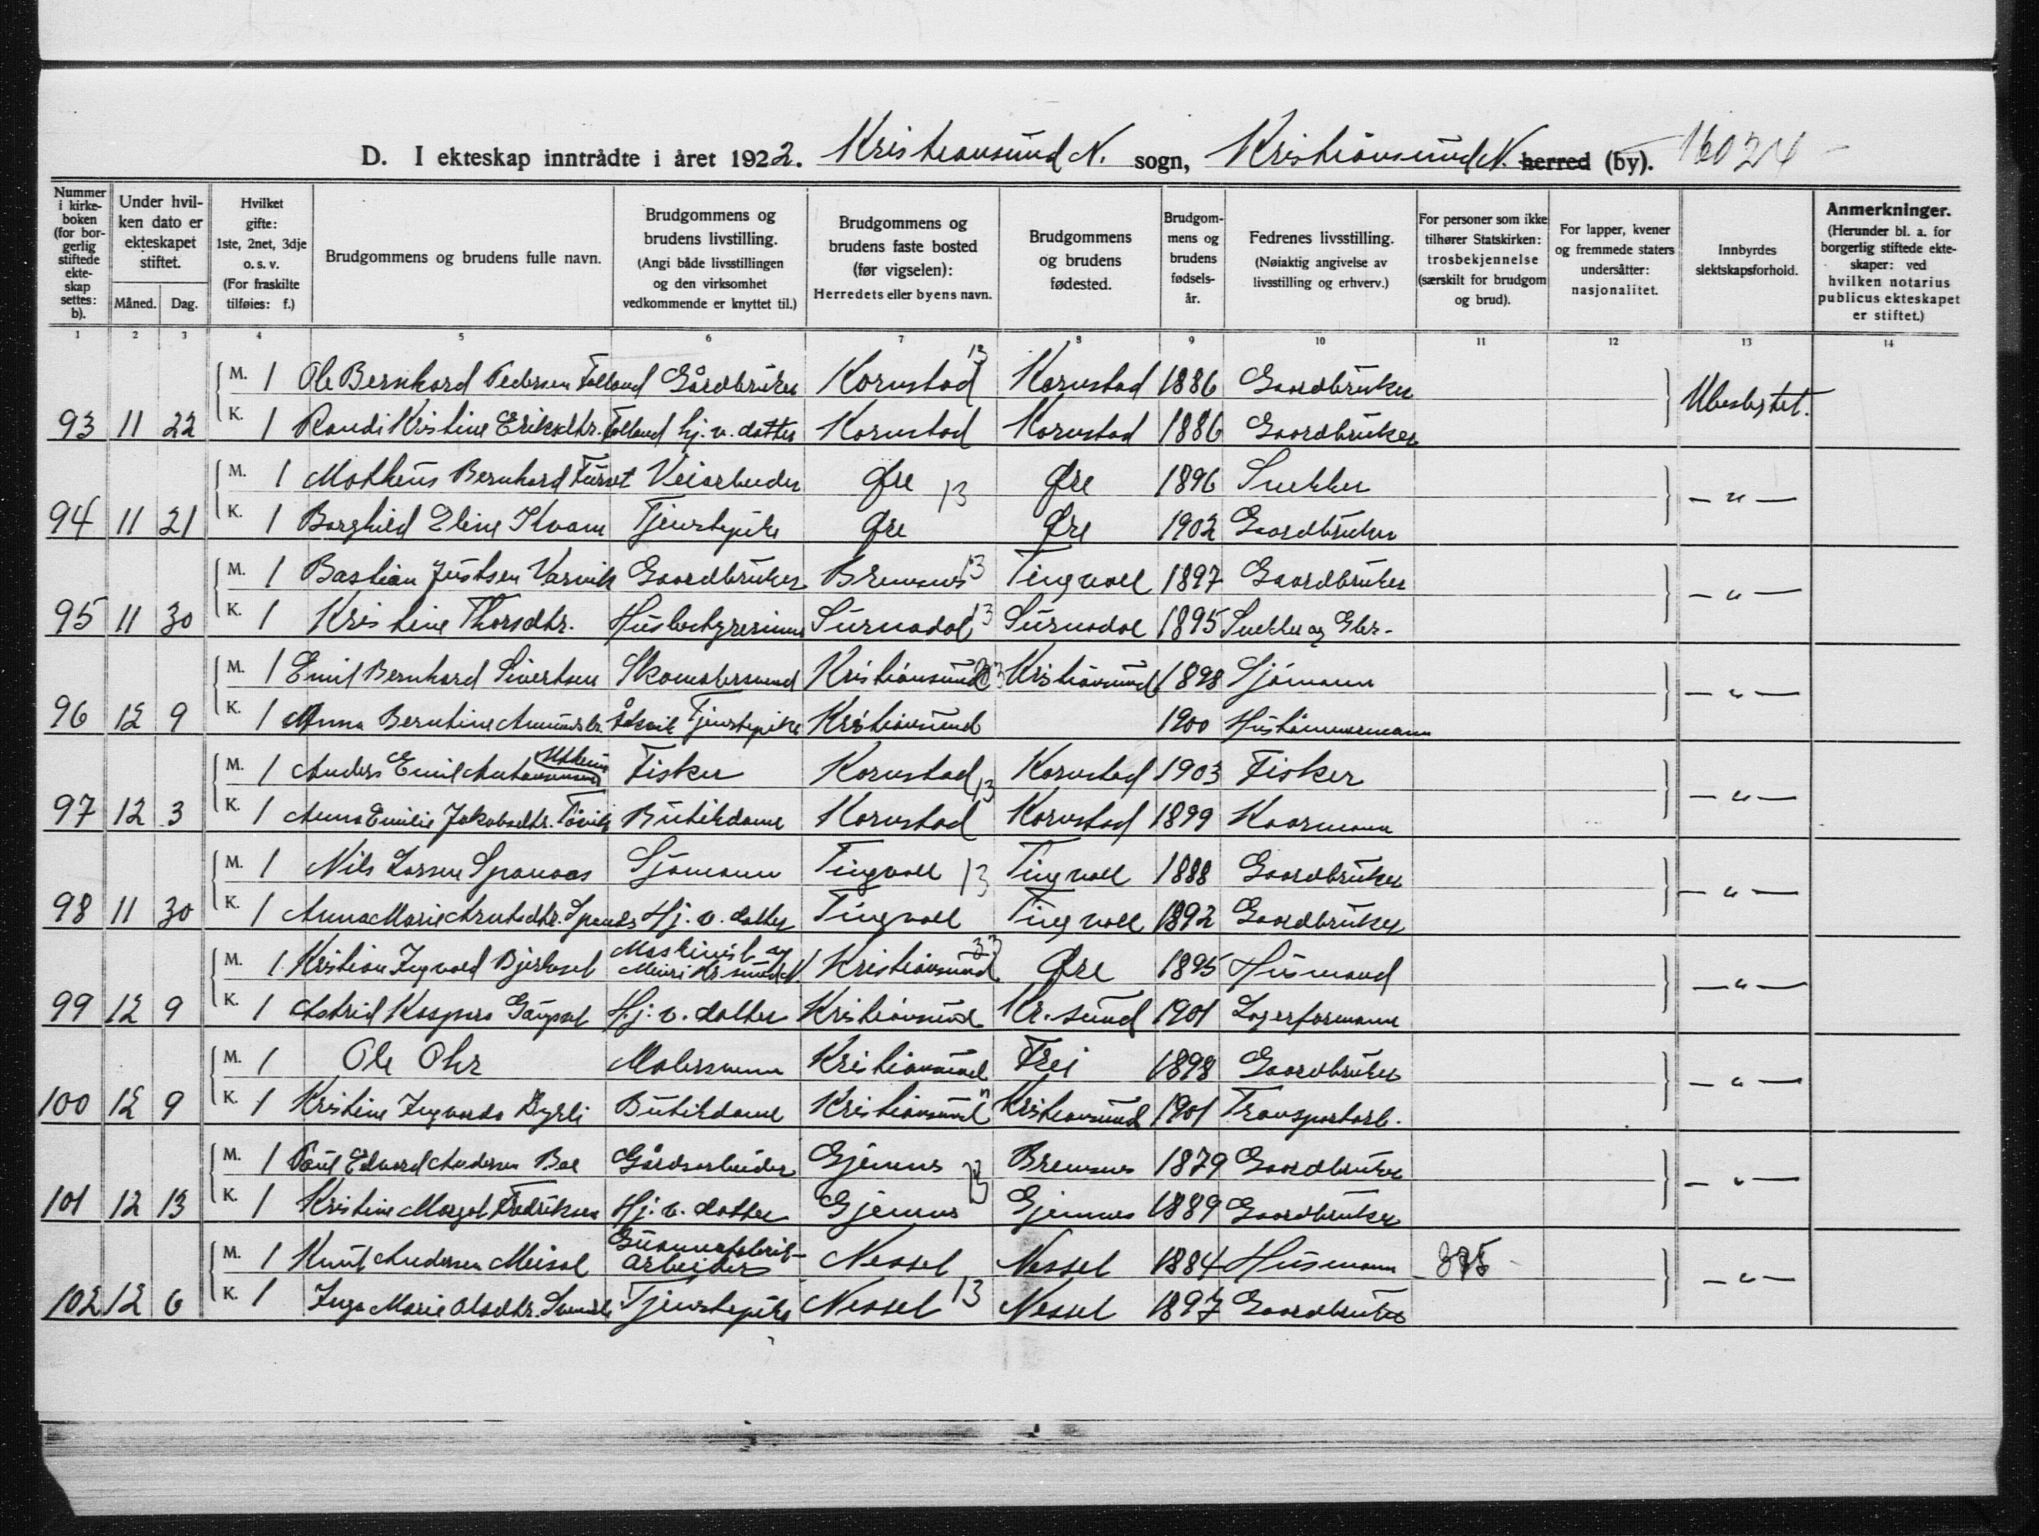 D. I ekteskap inntrådte i året 1922. Kristiansund N. sogn, Kristiansund N. herred (by). 16024
Nummer i kirkeboken (for borgerlig stiftede ekteskap settes: b).
Under hvilken dato er ekteskapet stiftet.
Måned. Dag.
Hvilket gifte: 1ste, 2net, 3dje o. s. v. (For fraskilte tilføies: f.)
Brudgommens og brudens fulle navn.
Brudgommens og brudens livstilling. (Angi både livsstillingen og den virksomhet vedkommende er knyttet til.)
Brudgommens og brudens faste bosted (før vigselen): Herredets eller byens navn.
Brudgommens og brudens fødested.
Brudgommens og brudens fødselsår.
Fedrenes livsstilling. (Nøiaktig angivelse av livsstilling og erhverv.)
For personer som ikke tilhører Statskirken: trosbekjennelse (særskilt for brudgom og brud).
For lapper, kvener og fremmede staters undersåtter: nasjonalitet.
Innbyrdes slektskapsforhold.
Anmerkninger. (Herunder bl. a. for borgerlig stiftede ekteskaper: ved hvilken notarius publicus ekteskapet er stiftet.)
1 2 3 4 5 6 7 8 9 10 11 12 13 14
M. 1 Ole Bernhard Pedersen Folland Gårdbruker Kornstad 13 Kornstad 1886 Gaardbruker Ubeslegtet.
93 11 22 K. 1 Randi Kristine Eriksdtr. Folland hj. v. datter Kornstad Kornstad 1886 Gaardbruker
M. 1 Matheus Bernhard Furset Veiarbeider Øre 13 Øre 1896 Snekker — " —
94 11 21 K. 1 Borghild Eline Kvam Tjenstepike Øre Øre 1902 Gaardbruker
M. 1 Bastian Justsen Varvik Gaardbruker Bremsnes 13 Tingvoll 1897 Gaardbruker — " —
95 11 30 K. 1 Kristine Thorsdtr. Husbestyrerinne Surnadal 13 Surnadal 1895 Snekker og Gbr.
M. 1 Emil Bernhard Sivertsen Skomakersvend Kristiansund Kristiansund 1898 Sjømann — " —
96 12 9 K. 1 Anna Berntine Amundsdtr. Tjenstepike Kristiansund 1900 Hustømmermann
M. 1 Anders Emil Utheim Fisker Kornstad 13 Kornstad 1903 Fisker — " —
97 12 3 K. 1 Anna Emilie Jakobsdtr. Tøvik Butikdame Kornstad Kornstad 1899 Kaarmann
M. 1 Nils Larsen Spanaas Sjømann Tingvoll 13 Tingvoll 1888 Gaardbruker — " —
98 11 30 K. 1 Anna Marie Arntsdtr. Hj. v. datter Tingvoll Tingvoll 1892 Gaardbruker
M. 1 Kristian Ingvald Bjerkset Maskinist og Kr.sund N. Kristiansund 33 Øre 1895 Husmand — " —
99 12 9 K. 1 Astrid Kaspara Gaupset Hj. v. datter Kristiansund Kr.sund 1901 Lagerformann
M. 1 Ole Ohr Malersvenn Kristiansund Frei 1898 Gaardbruker — " —
100 12 9 K. 1 Kristine Ingvarda Byrli Butikdame Kristiansund Kristiansund 1901 Transportarb.
M. 1 Paul Edvard Andersen Boe Gårdsarbeider Gjemnes 13 Bremsnes 1879 Gaardbruker — " —
101 12 13 K. 1 Kristine Margot Fredriksen Hj. v. datter Gjemnes Gjemnes 1889 Gaardbruker
M. 1 Knut Andersen Meisal Guannofabrik-arbeider Nesset Nesset 1884 Husmann — " —
102 12 6 K. 1 Inga Marie Olsdtr. Tjenstepike Nesset 13 Nesset 1897 Gaardbruker